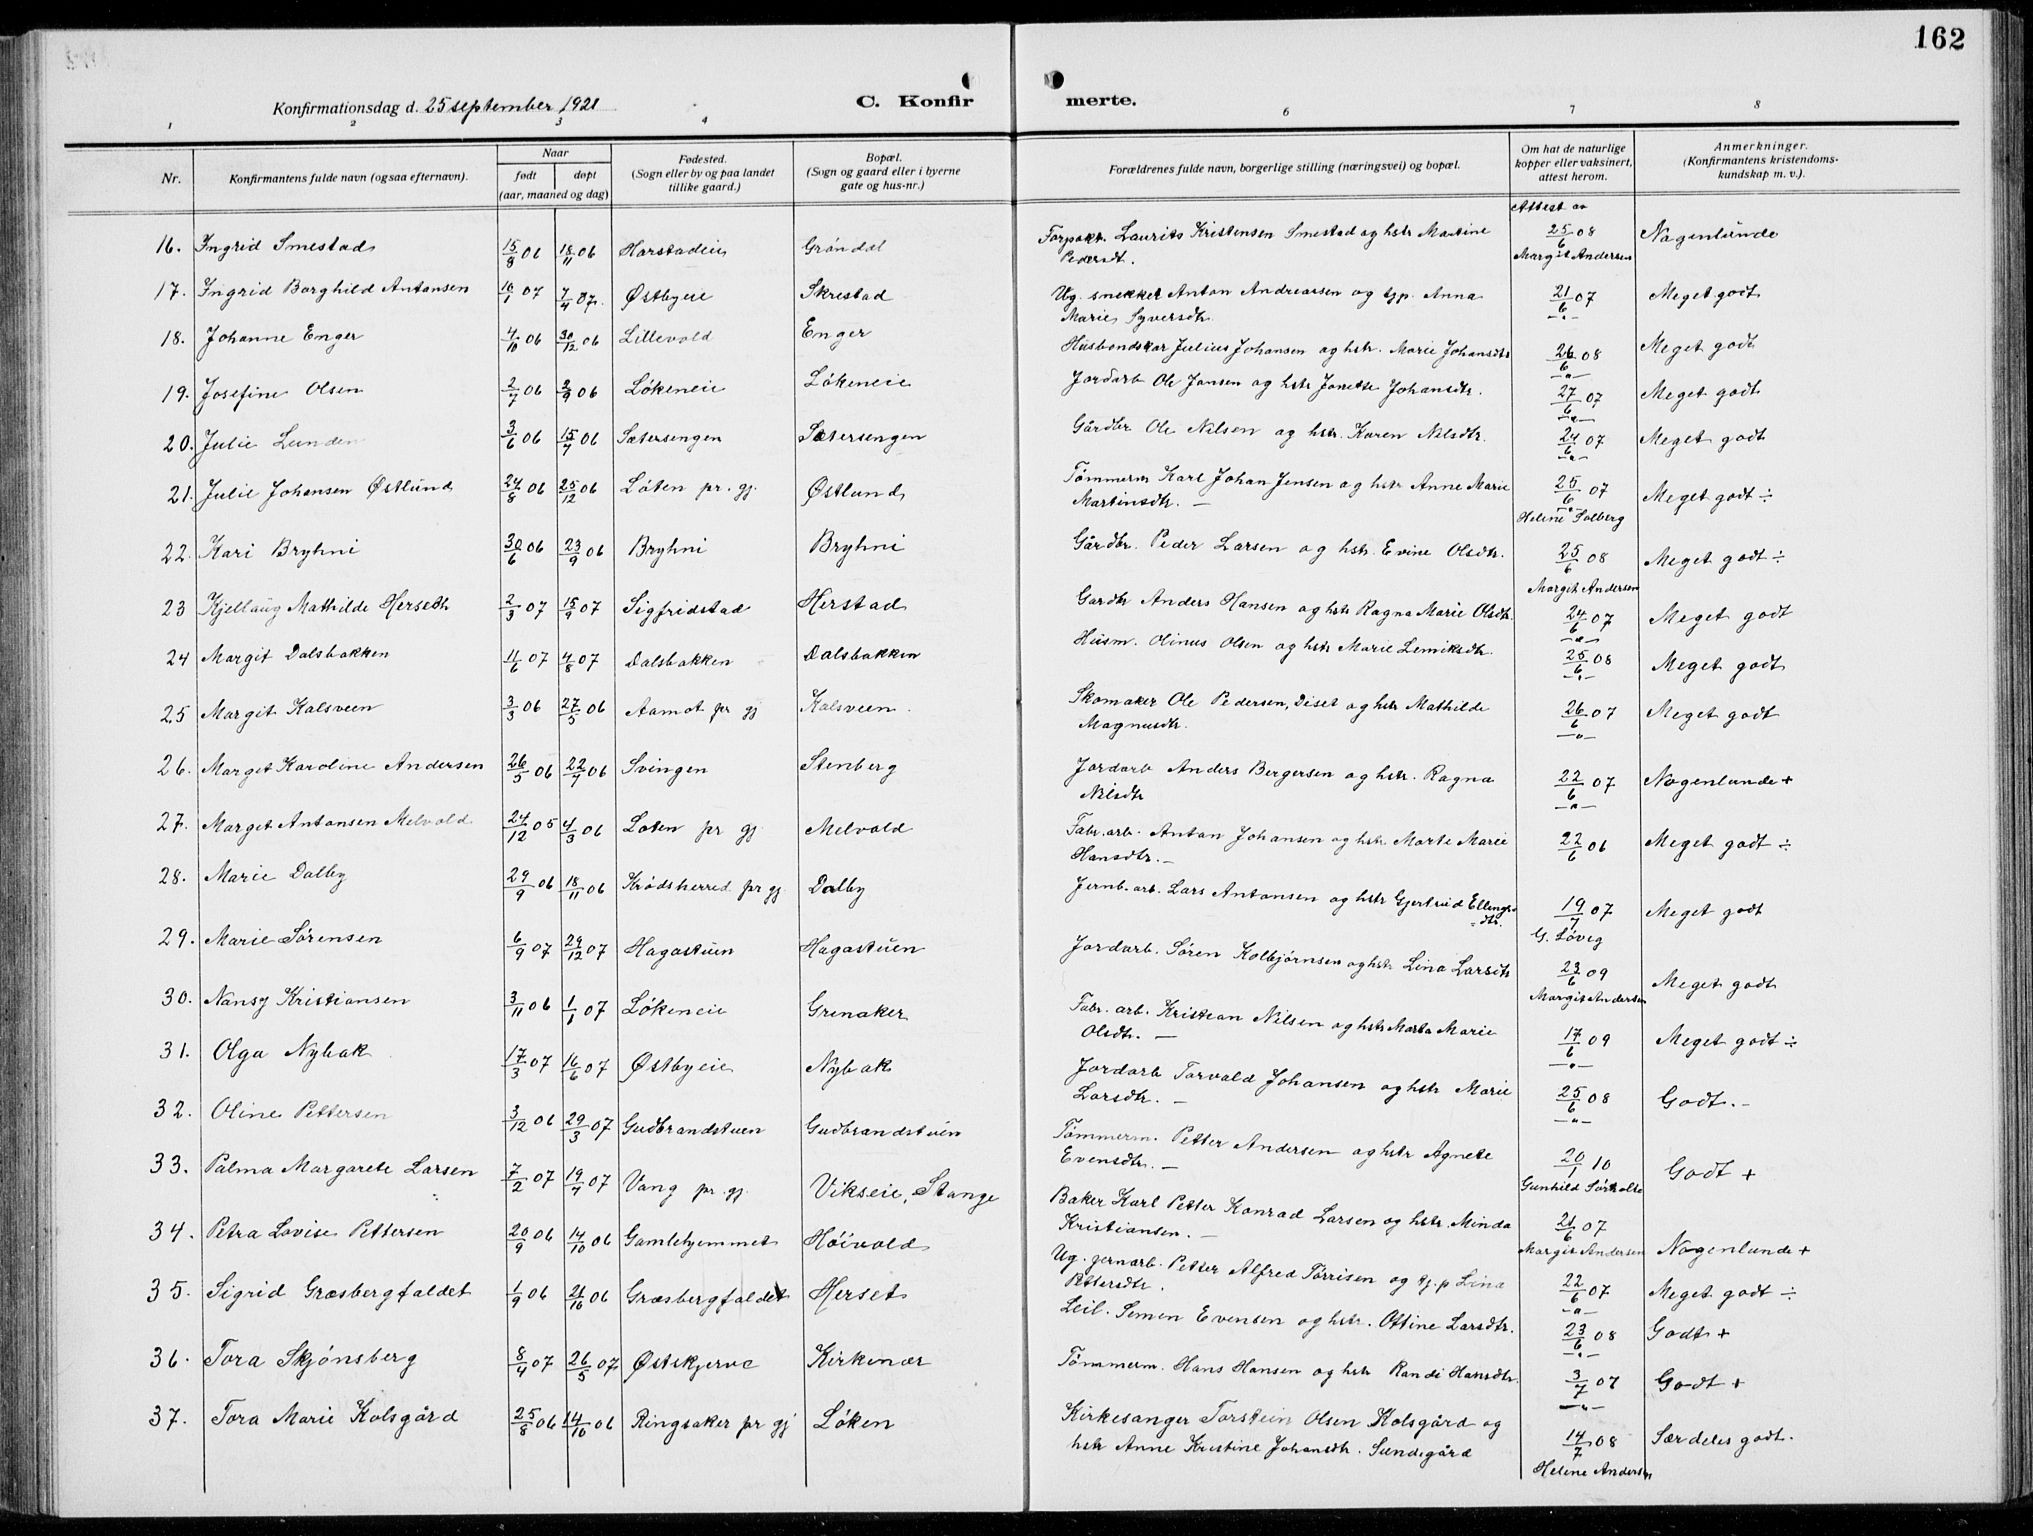 162
Konfirmationsdag d. 25 september 1921
C. Konfirmerte.
1 2 3 4 6 7 8
Nr. Konfirmantens fulde navn (ogsaa efternavn). Naar født døpt (aar, maaned og dag) Fødested. (Sogn eller by og paa landet tillike gaard.) Bopæl. (Sogn og gaard eller i byerne gate og hus-nr.) Forældrenes fulde navn, borgerlige stilling (næringsvei) og bopæl. Om hat de naturlige kopper eller vaksinert, attest herom. Anmerkninger. (Konfirmantens kristendoms-kundskap m. v.).
Attest av
16. Ingrid Smestad 15/8 06 18/11 06 Harstadeie Gröndal Forpakt. Laurits Kristensen Smestad og hstr Martine Pedersdt. 25/6 08 Margit Andersen Nogenlunde
17. Ingrid Borghild Antonsen 10/1 07 7/4 07. Østbyeie Skrestad Ug. snekker Anton Andreassen og tjp. Anna Marie Syversdtr. 21/6 07 -"- Meget godt
18. Johanne Enger 4/10 06 30/12 06 Lillevold Enger Husbondskar Julius Johansen og hstr. Marie Johansdtr 26/6 08 -"- Meget godt
19. Josefine Olsen 2/7 06 2/9 06 Lökeneie Lökeneie Jordarb Ole Jonsen og hstr Jonette Johansdtr. 27/6 07 -"- Meget godt
20. Julie Lunden 3/6 06 15/7 06 Sætersengen Sætersengen Gårdbr Ole Nilsen og hstr. Karen Nilsdtr. 24/6 07 -"- Meget godt
21. Julie Johansen Østlund 24/8 06 25/12 06 Löten pr. gj. Østlund Tömmerm Karl Johan Jensen og hstr Anne Marie Martinsdtr. — 25/6 07 -"- Helene Solberg Meget godt ÷
22. Kari Bryhni 30/6 06 23/9 06 Bryhni Bryhni Gårdbr. Peder Larsen og hstr. Evine Olsdtr. 25/6 08 Margit Andersen Meget godt ÷
23 Kjellaug Mathilde Herseth 2/3 07 15/9 07 Sigfridstad Herstad Gardbr Anders Hansen og hstr Ragna Marie Olsdtr. 24/6 07 -"- Meget godt
24 Margit Dalsbakken 11/6 07 4/8 07 Dalsbakken Dalsbakken Husm. Olinus Olsen og hstr Marie Lemiksdtr. 25/6 08 -"- Meget godt
25 Margit Kalsveen 3/3 06 27/5 06 Aamot pr gj Kalsveen. Skomaker Ole Pedersen, Diset og hstr Mathilde Magnusdtr. 26/6 07 -"- Meget godt
26. Marget Karoline Andersen 26/5 06 22/7 06 Svingen Stenberg Jordarb Anders Bergersen og hstr. Ragna Nilsdtr 22/6 07 -"- Nogenlunde +
27. Marget Antonsen Melvold 24/12 05 4/3 06 Loten pr gj. Melvold Fabr. arb. Anton Johansen og hstr. Marte Marie Hansdtr. — 22/6 06 Meget godt ÷
28. Marie Dalby 29/9 06 18/11 06 Krödsherred pr gj. Dalby Jernb. arb. Lars Antonsen og hstr Gjertrud Ellings-dtr. 19/7 07 G. Lövig Meget godt
29. Marie Sörensen 6/9 07 29/12 07 Hagastuen Hagastuen Jordarb. Sören Kolbjørnsen og hstr Lina Larsdtr 23/6 09 Margit Andersen Meget godt
30. Nansy Kristiansen 3/11 06 1/1 07 Lökeneie Grinaker Fabr. arb. Kristian Nilsen og hstr Marta Marie Olsdtr. — 17/6 09 -"- Meget godt ÷
31. Olga Nybak 17/3 07 16/6 07 Østbyeie Nybak Jordarb Torvald Johansen og hstr Marie Larsdtr. — 25/6 08 -"- Godt. -
32. Oline Pettersen 3/12 06 29/3 07 Gudbrandstuen Gudbrandstuen Tömmerm. Petter Andersen og hstr Agnete Evensdtr. — 20/1 10 Gunhild Godt +
33. Palma Margarete Larsen 7/2 07 19/4 07 Vang pr. gj. Vikseie, Stange Baker Karl Petter Konrad Larsen og hstr. Minda Kristiansen. — 21/6 07 Margit Andersen
34. Petra Lovise Pettersen 20/9 06 14/10 06 Gamlehjemmet Höivold Ug. jernarb. Petter Alfred Törrisen og tj. p Lina Pettersdtr. 22/6 07 -"- Nogenlunde +
35. Sigrid Græsbergfaldet 1/9 06 21/10 06 Græsbergfaldet Herset Leil. Semen Evensen og hstr. Ottine Larsdtr. 23/6 08 -"- Meget godt ÷
36. Tora Skjönsberg 8/4 07 26/5 07 Østskjerve Kirkenær Tömmerm. Hans Hansen og hstr Randi Hansdtr. 3/7 07 -"- Godt +
Godt +
37. Tora Marie Kolsgård 25/8 06 14/10 06 Ringsaker pr gj Löken Kirkesanger Torstein Olsen Kolsgård og hstr Anne Kristine Johansdtr. Sundsgård 14/7 08 Helene Andersen Særdeles godt.